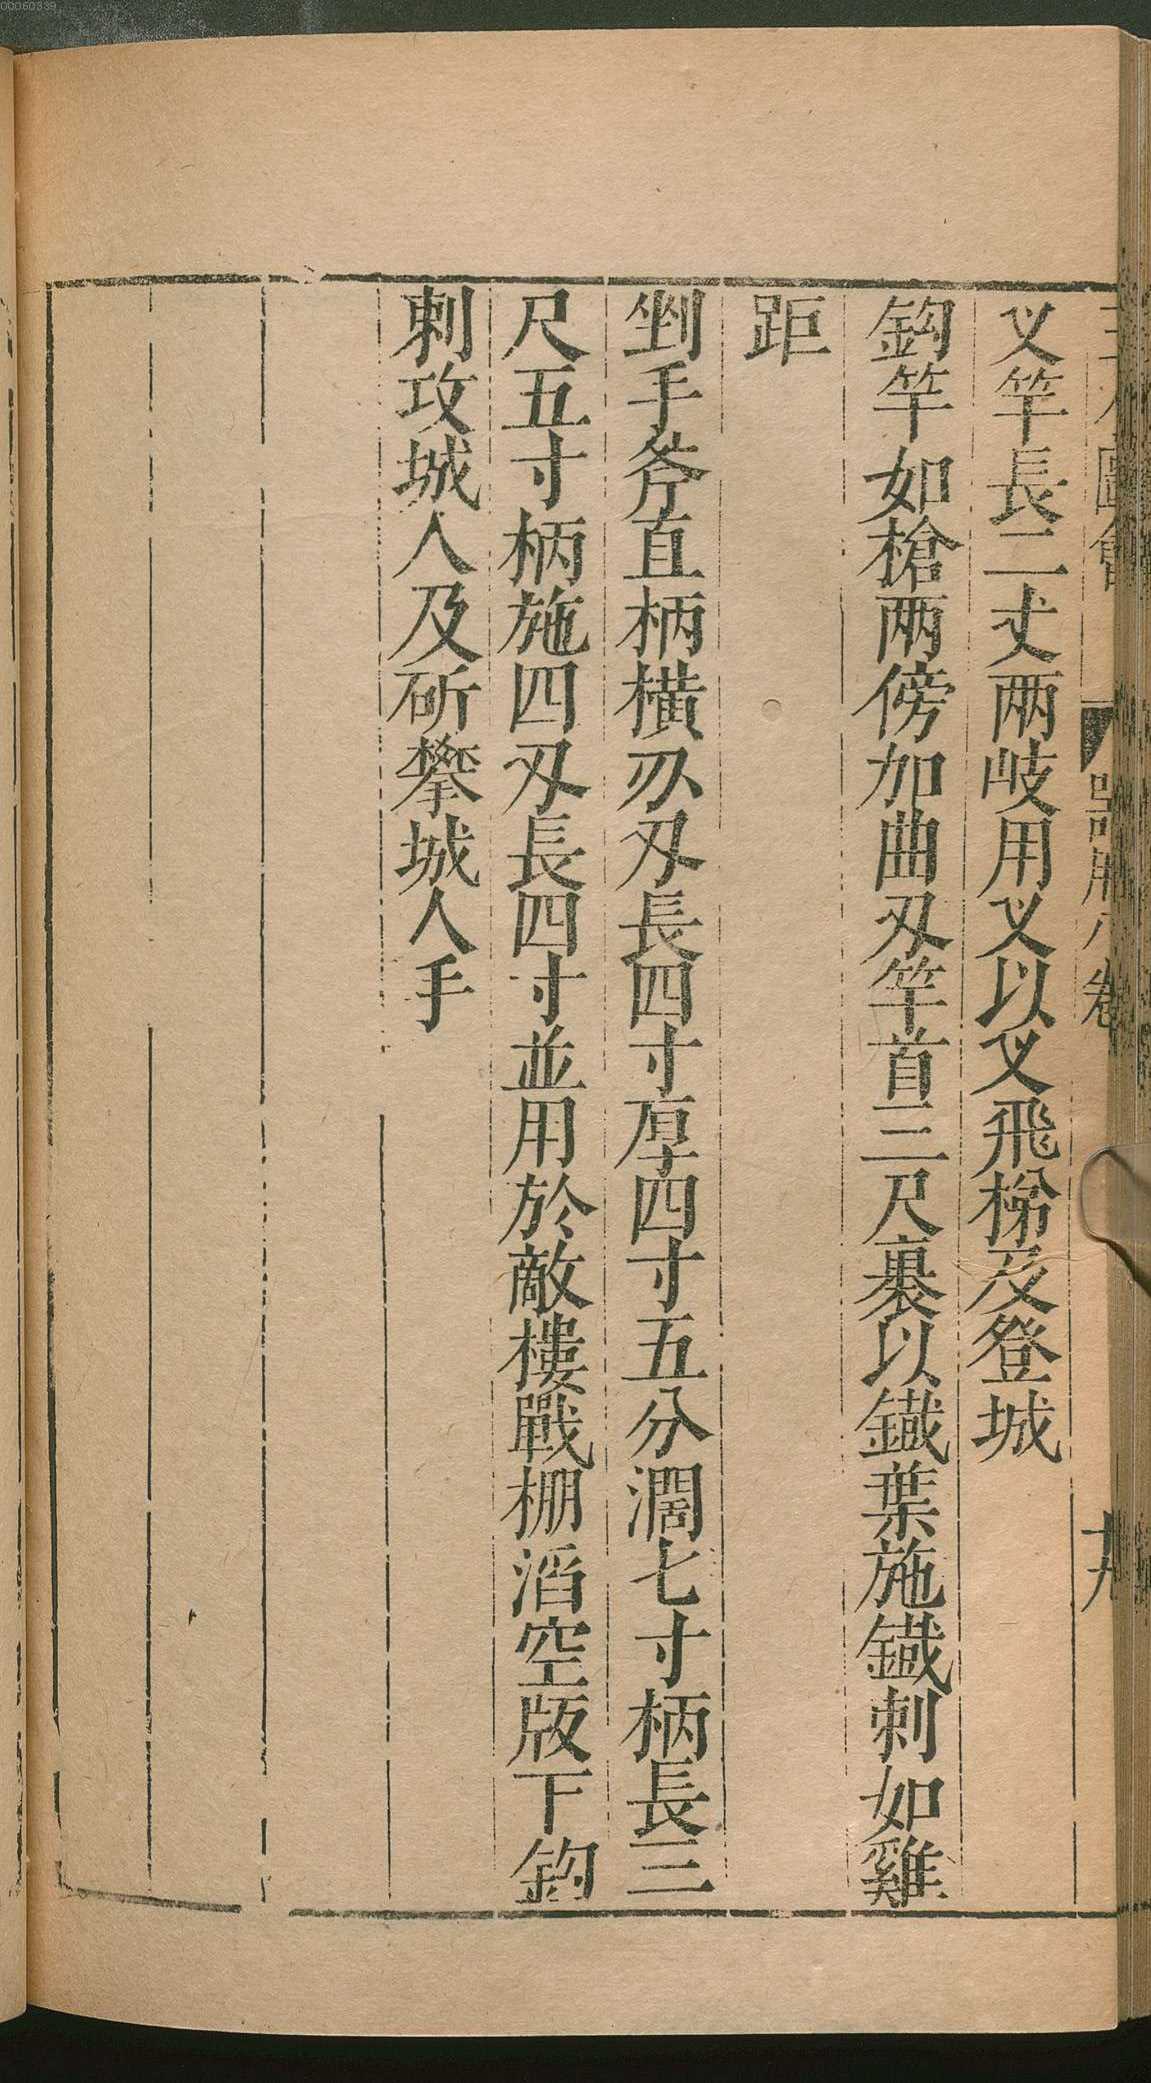 叉竿長二丈两岐用叉以叉飛梯及登城
鈎竿如槍两傍加曲刄竿首三尺裹以鐡葉施鐡刺如雞
距
剉手斧直柄橫刃刄長四寸厚四寸五分濶七寸柄長三
尺五寸柄施四刄長四寸並用於敵樓戰棚滔空版下鈎
刺攻城人及斫攀城人手
00060339